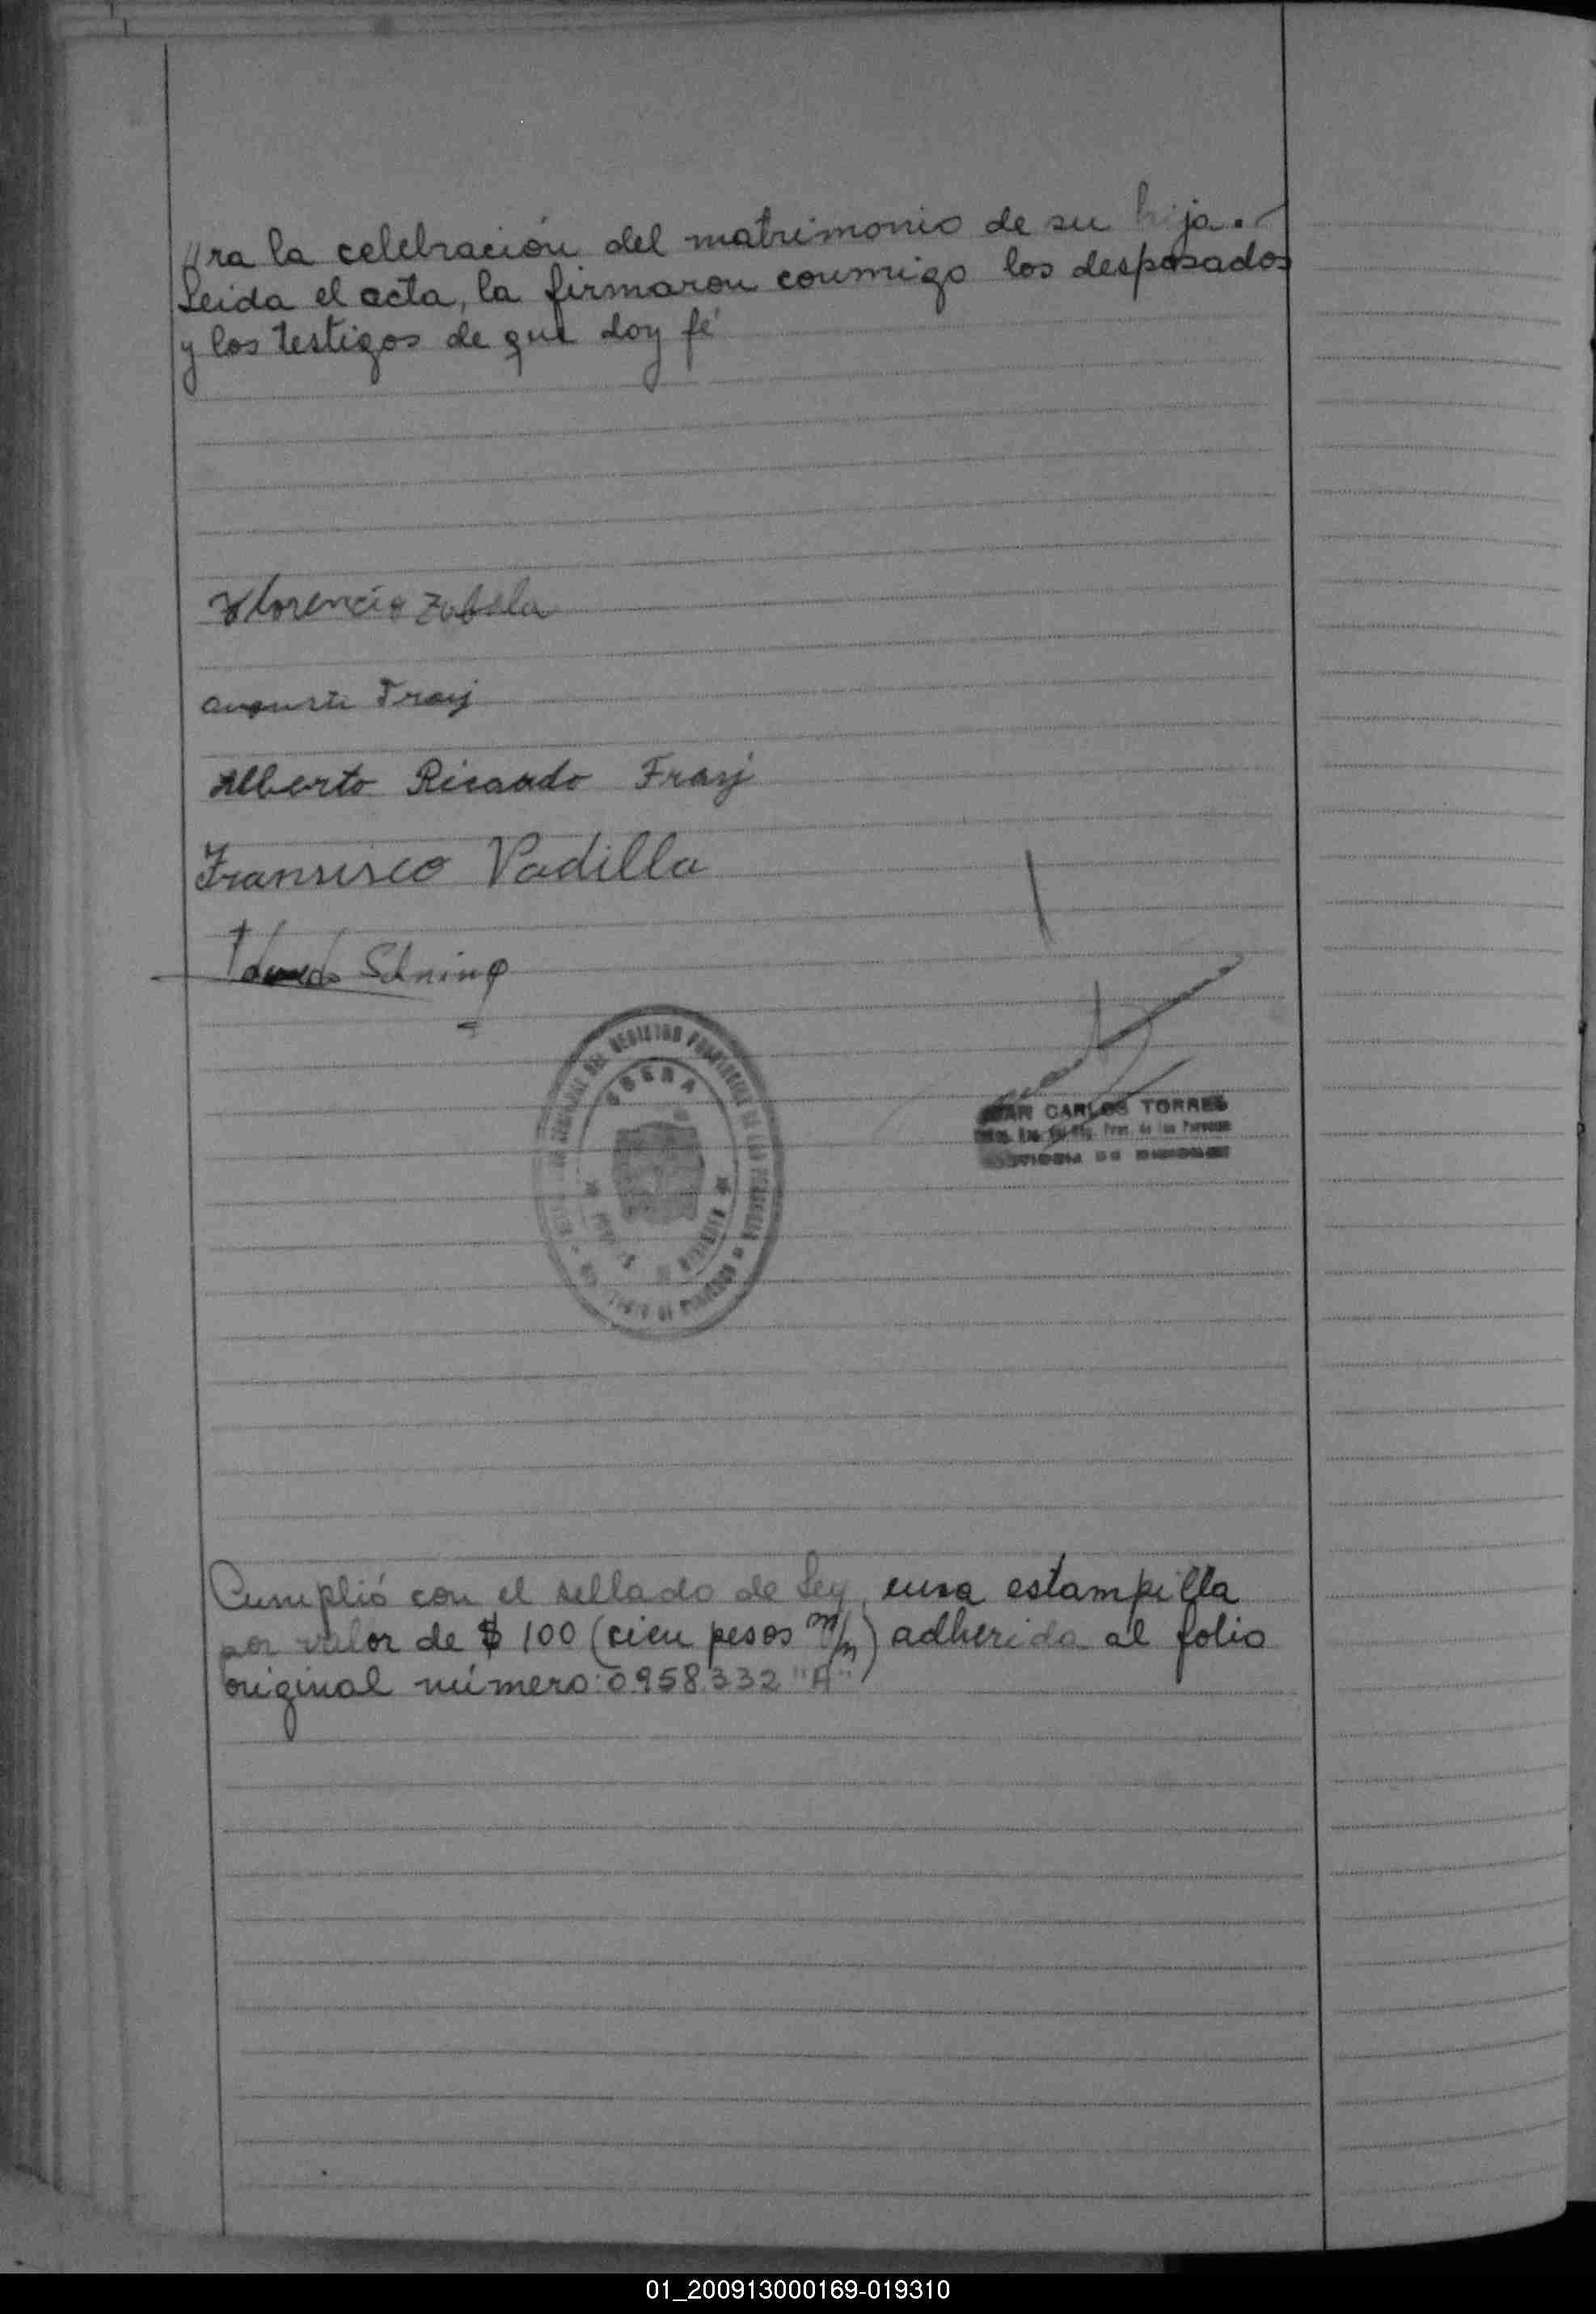 "ra la celebración del matrimonio de su hija.
Leida el acta, la firmaron conmigo los desposados
y los testigos de que doy fé
Florencio Zubela
Frayj
Alberto Ricardo Frayj
Fransisco Vadilla
REGISTRO PROVINCIAL DE LAS PERSONAS
CARLOS TORRES
Prov. de las Personas
Cumplió con el sellado de Ley, una estampilla
por valor de $ 100 (cien pesos m/n) adherida al folio
original número: 0958.332 "A"
01_200913000169-019310